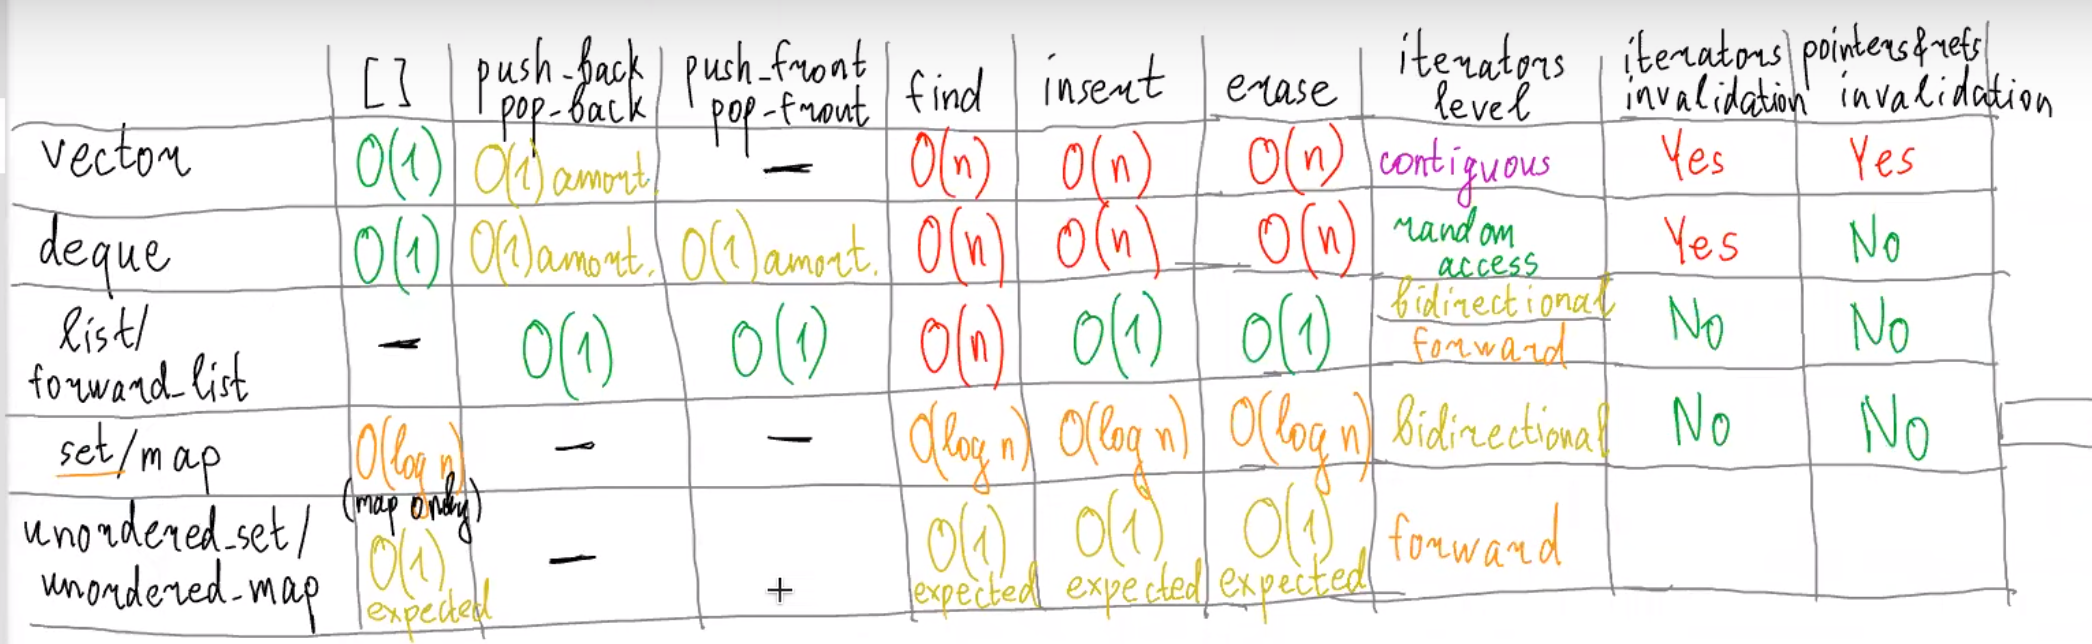 [ ] push_back push_front find insert erase iterators iterators pointers&refs
pop-back pop-front level invalidation invalidation
vector O(1) O(1) amort. — O(n) O(n) O(n) contiguous Yes Yes
deque O(1) O(1) amort. O(1) amort. O(n) O(n) O(n) random access Yes No
list/ forward_list — O(1) O(1) O(n) O(1) O(1) bidirectional forward No No
set/map O(log n) (map only) — — O(log n) O(log n) O(log n) bidirectional No No
unordered_set/ unordered_map O(1) expected — O(1) expected O(1) expected O(1) expected forward